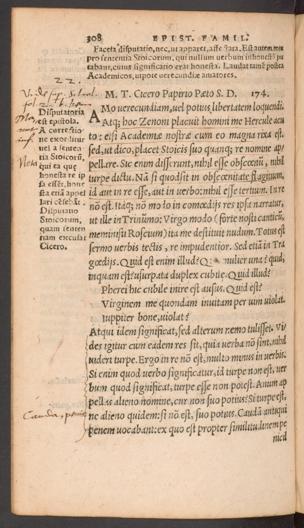 308 EPIST. FAMIL.
Faceta disputatio, nec, ut apparet, aste ſtara. Est autem
pro ſententia Stoicorum, qui nullum verbum inhoneſtũ pu
tabant, cuius ſignificatio erat honeſta. Laudat tamẽ poſtea
Academicos, utpote verecundiæ amatores.
22.
M. T. Cicero Papirio Pæto S. D. 174.
Diſputatoria
eſt epiſtola.
A correctio-
ne exorſus,
uel à ſenten
tia Stoicorũ,
qui ea quæ
honeſta re ip
ſa eſſet, hone
ſta etiã appel
lari cẽſebãt.
Diſputatio
Stoicorum,
quam ſenten
tiam excuſat
Cicero.
Nota
AMo uerecundiam, uel potius libertatem loquendi.
Atq; hoc Zenoni placuit homini me Hercule acu
to: etſi Academiæ noſtræ cum eo magna rixa est.
ſed, ut dico, placet Stoicis ſuo quamq; re nomine ap-
pellare. Sic enim diſſerunt, nihil eſſe obſcœnũ, nihil
turpe dictu. Nã ſi quod ſit in obſcœnitate flagitium,
id aut in re eſſe, aut in uerbo: nihil eſſe tertium. In re
nõ est. Itaq; nõ modo in comœdijs res ipſa narratur,
ut ille in Trinũmo: Virgo modo (forte noſti canticũ,
meminiſti Roſcium) ita me deſtituit nudum. Totus est
ſermo uerbis tectis, re impudentior. Sed etiã in Tra
gœdijs. Quid est enim illud? mulier una? quid,
inquam eſt? uſurpata duplex cubile. Quid illud?
Pherei hic cubile inire est auſus. Quid eſt?
Virginem me quondam inuitam per uim uiolat
Iuppiter bone, uiolat?
Atqui idem ſignificat, ſed alterum nemo tuliſſet. Vi
des igitur cum eadem res ſit, quia uerba nõ ſint, nihil
uideri turpe. Ergo in re nõ est, multo minus in uerbis.
Si enim quod uerbo ſignificatur, id turpe non est, uer
bum quod ſignificat, turpe eſſe non poteſt. Anum ap
pellas alieno nomine, cur non ſuo potius? Si turpe est,
ne alieno quidem: ſi nõ est, ſuo potius. Caudã antiqui
penem uocabant: ex quo est propter ſimilitudinem pe
nicil
Cauda, penis